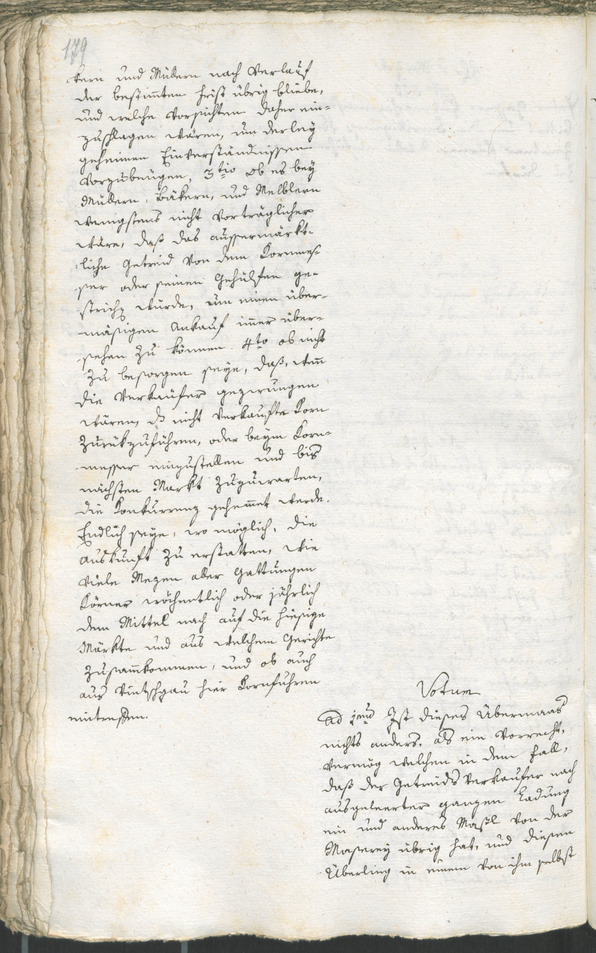 179
kern und Müllern nach Verlauf
der bestimten Frist übrig bliebe,
und welche Vorsichten daher ein-
zuschlagen wären, um derley
geheimen Einverständnissen
vorzubeugen, 3tio ob es bey
Müllern, Bäkern, und Melblern
wenigstens nicht vorträglicher
wäre, daß das aussermärkt-
liche Getreid von dem Kornmes-
ser oder seinen Gehülfen ge-
würde, um einen über-
mäsigen Ankauf imer über-
sehen zu können. 4to ob nicht
zu besorgen seye, daß, wen
die Verkäufer gezwungen
wären, dß nicht verkaufte Korn
zurükzuführen, oder beym Korn-
messer einzustellen und bis
nächsten Markt zuzuwarten,
die Konkurrenz gehemet werde.
Endlich seye, wo möglich, die
Auskunft zu erstatten, wie
viele Mezen aller Gattungen
Körner wöchentlich oder jährlich
dem Mittel nach auf die hiesige
Märkte und aus welchem Gerichte
zusamkommen, und ob auch
aus Vintschgau hier Kornfuhren
eintreffen.
Votum
ad 1mum Ist dieses Übermaas
nichts anders, als ein Vorrecht,
vermög welchen in dem Fall,
daß der Getreids Verkaufer nach
ausgeleerter ganzen Ladung
ein und anderes Massl von der
Masserey übrig hat, und diesen
Überling in einem von ihm selbst